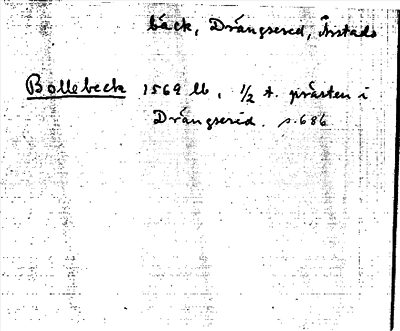 bäck, Drängsered, Årstads
Bollebeck 1569 lb, 1/2 t. prästen i
Drängserid. s. 686